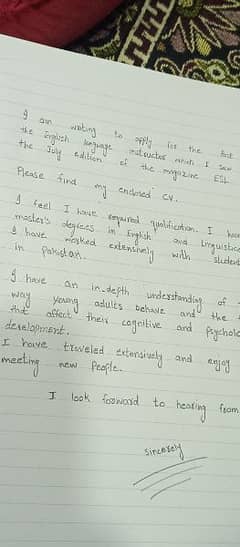 I am writing to apply for the Post
the English language instructor which I saw
the July edition of the magazine ESL
Please find my enclosed CV.
I feel I have required qualification. I have
master's degrees in English and Linguistics
I have worked extensively with student
in Pakistan.
I have an in-depth understanding of
way young adults behave and the
that affect their cognitive and Psychol
development.
I have traveled extensively and enjoy
meeting new People.
I look forward to hearing from
sincerely